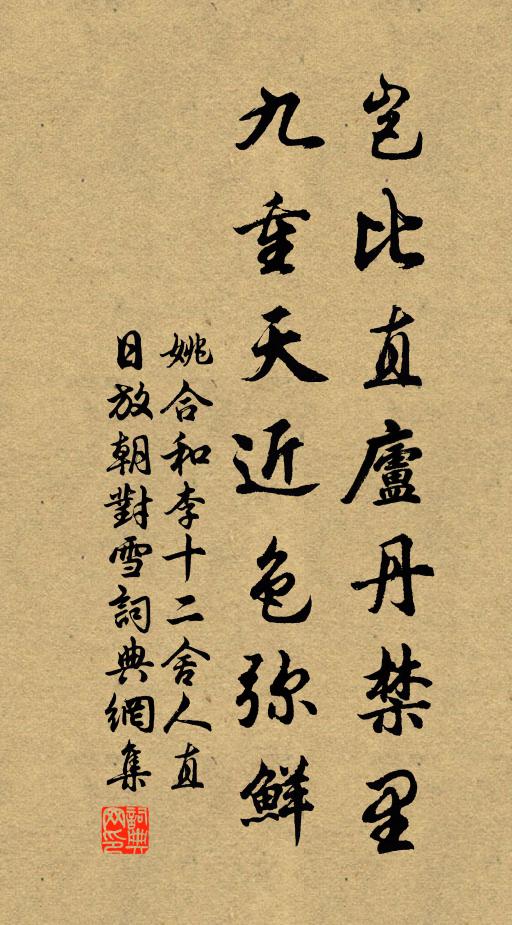 豈比直廬丹禁里
九重天近色弥鮮
姚合和李十二舍人直
日放朝對雪詞典網集
詞典
网印